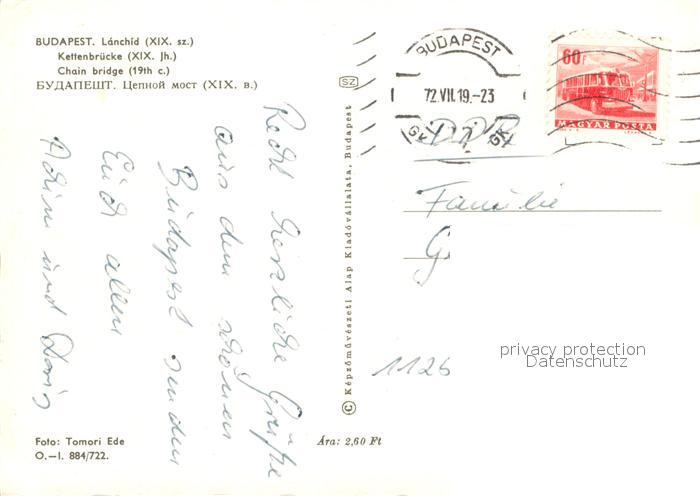 BUDAPEST. Lánchíd (XIX. sz.)
Kettenbrücke (XIX. Jh.)
Chain bridge (19th c.)
БУДАПЕШТ. Цепной мост (XIX. в.)
Recht herzliche Grüße
aus dem schönen
Budapest senden
Euch allen
und Doris
Foto: Tomori Ede
O.–I. 884/722.
Ára: 2,60 Ft
© Képzőművészeti Alap Kiadóvállalata, Budapest
SZ
BUDAPEST
72.VII.19.-23
60f
MAGYAR POSTA
DDR
Familie
G
1126
privacy protection
Datenschutz